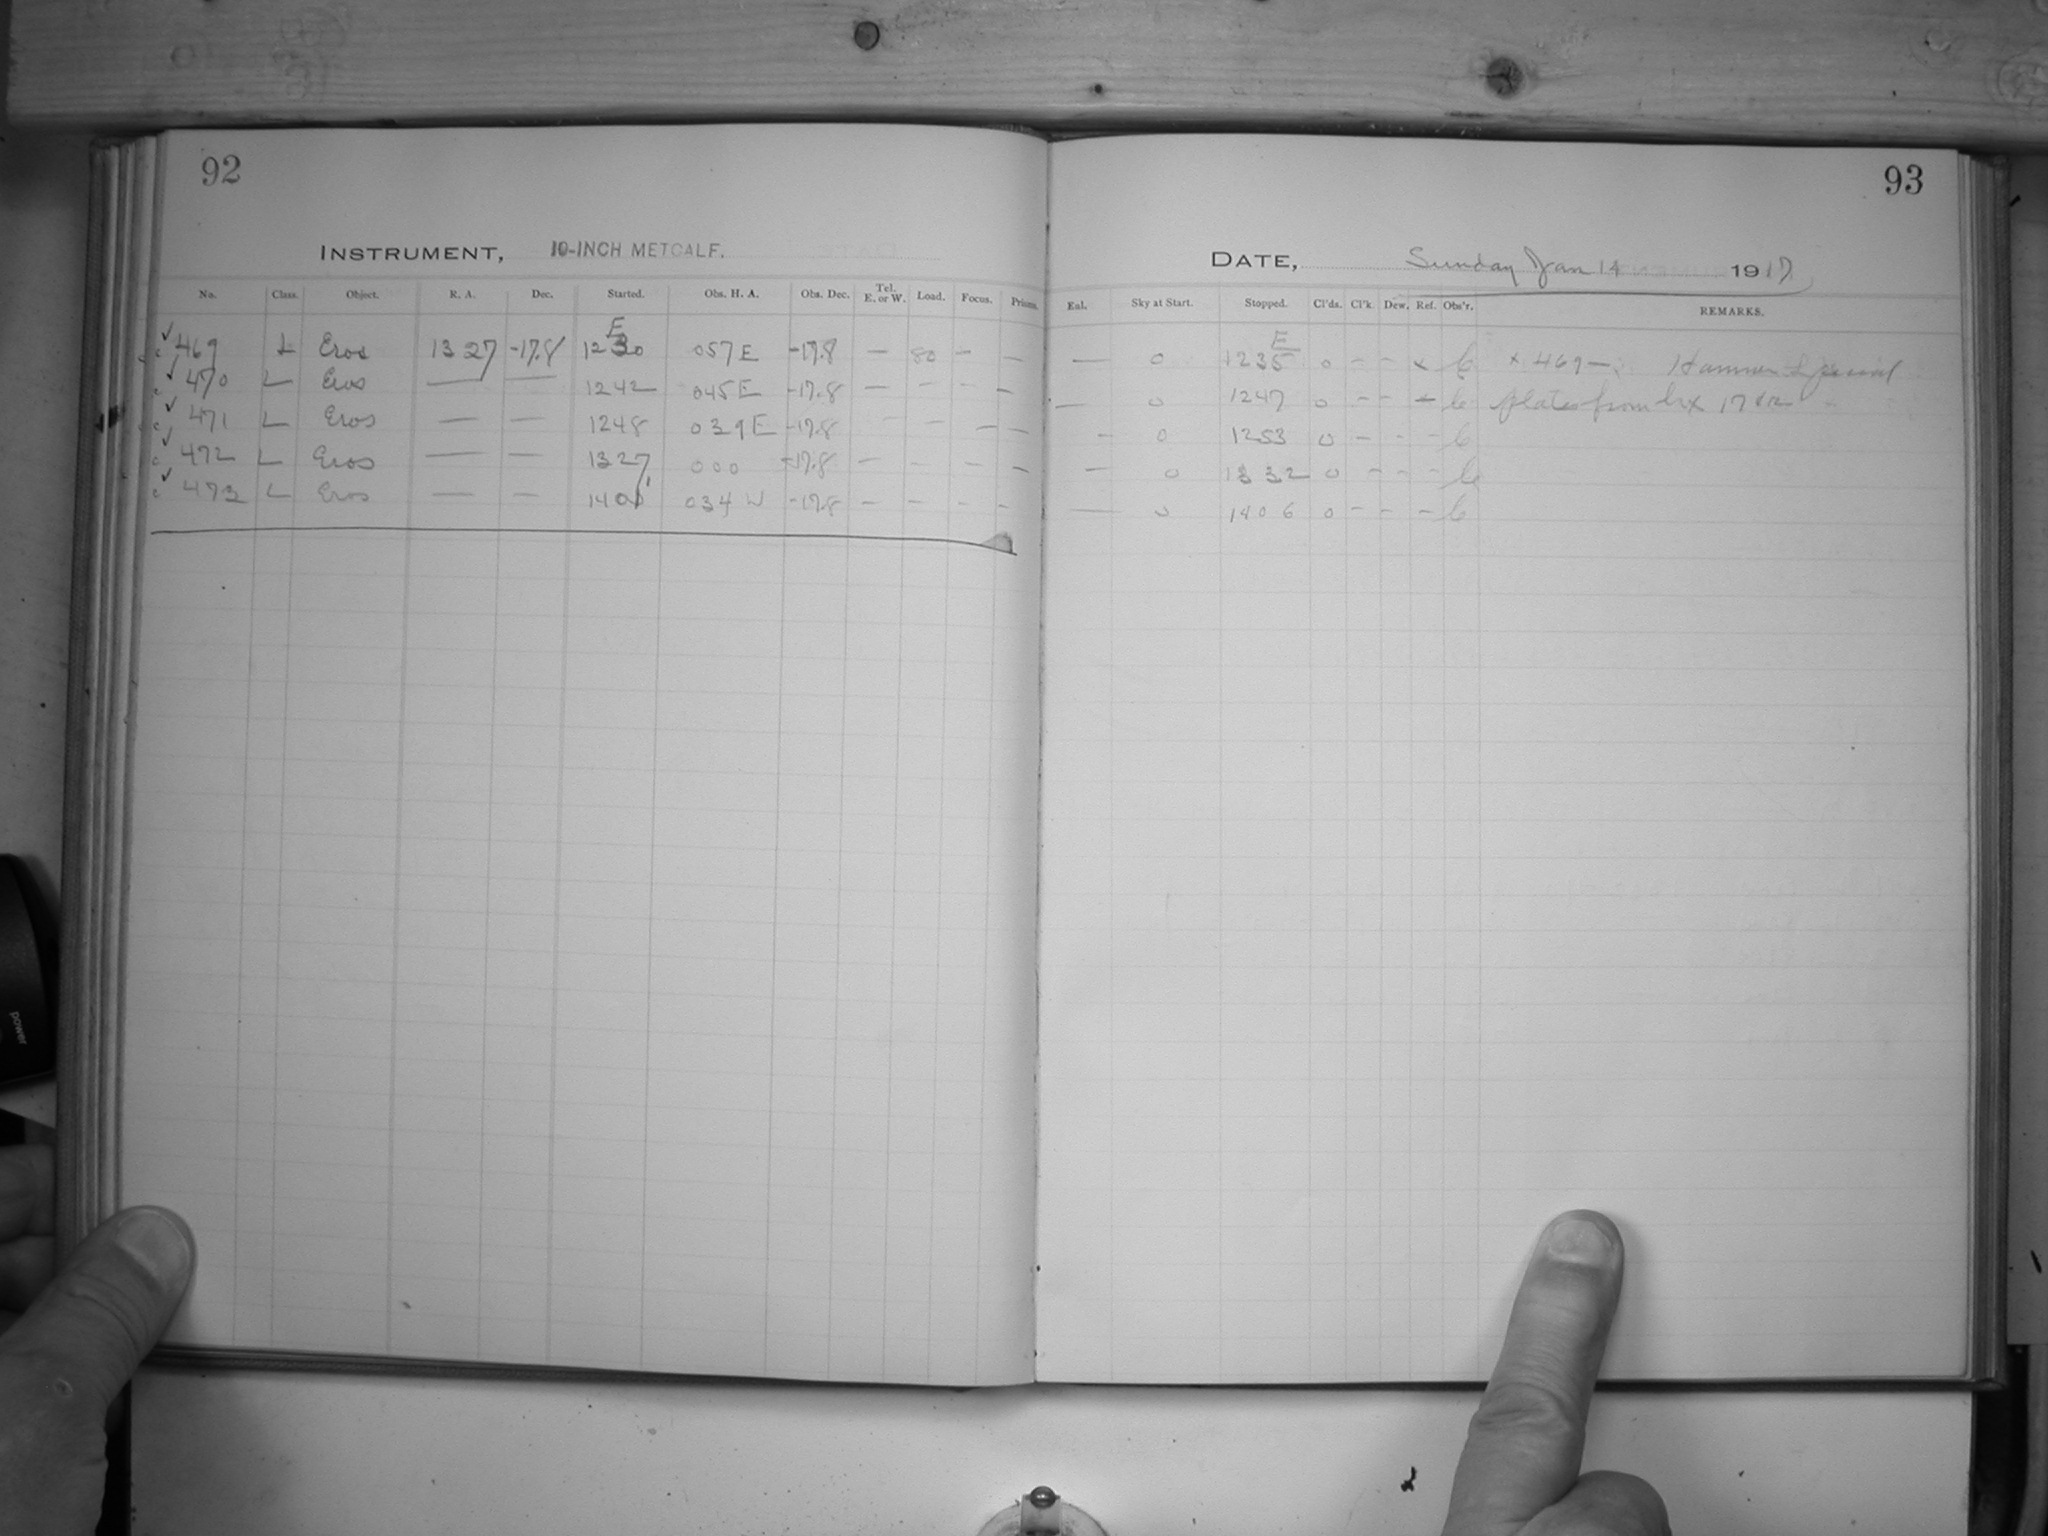 92
INSTRUMENT, 10-INCH METCALF.
No. Class. Object. R. A. Dec. Started. Obs. H. A. Obs. Dec. Tel. E. or W. Load. Focus. Prisms.
E
✓ c 469 L Eros 13 27 -17.8 12 30 0 57 E -17.8 — 80 — —
✓ c 470 L Eros — — 12 42 0 45 E -17.8 — — — —
✓ c 471 L Eros — — 12 48 0 39 E -17.8 — — — —
✓ c 472 L Eros — — 13 27 0 00 -17.8 — — — —
✓ c 473 L Eros — — 14 01 0 34 W -17.8 — — — —
93
DATE, Sunday Jan 14 1917
Exl. Sky at Start. Stopped. Cl'ds. Cl'k. Dew. Ref. Obs'r. REMARKS.
E
— 0 12 35 0 - - x C x 469 — Hammer Special
— 0 12 47 0 - - - C plates from box 17
— 0 12 53 0 - - - C
— 0 13 32 0 - - - C
— 0 14 06 0 - - - C
power